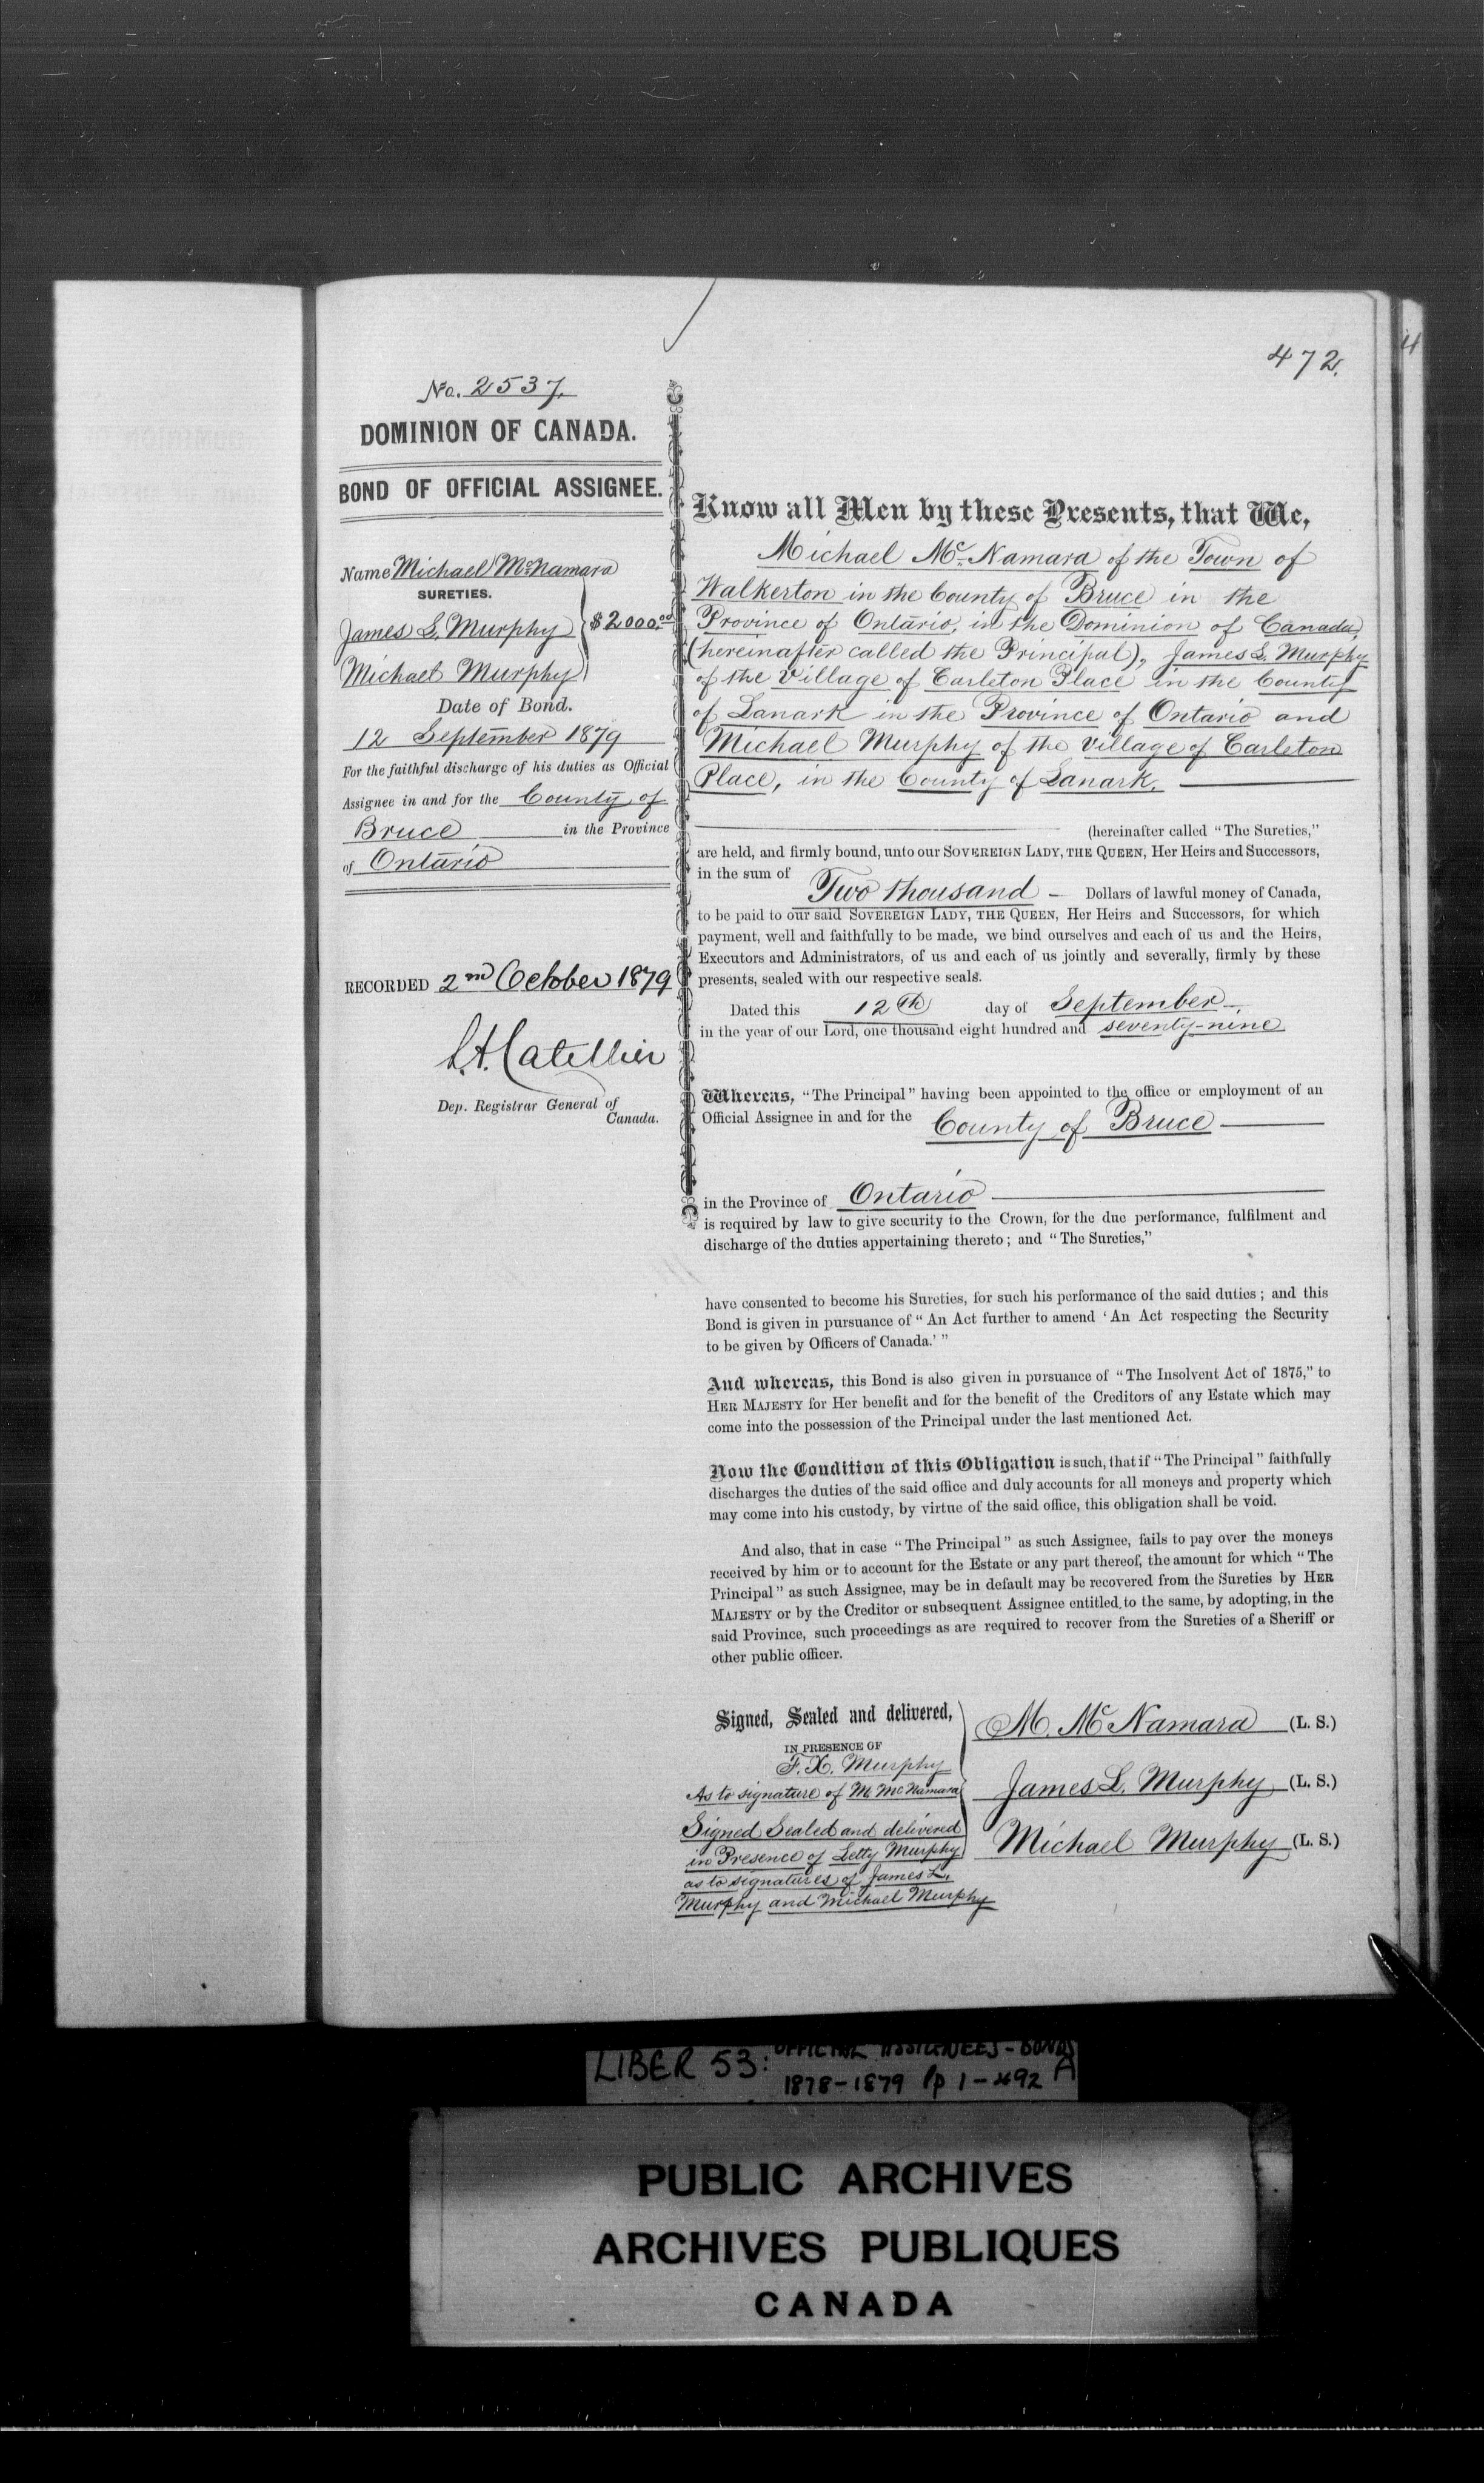 472.
No. 2537.
DOMINION OF CANADA.
BOND OF OFFICIAL ASSIGNEE.
Name Michael McNamara
SURETIES.
James L. Murphy
$2000.00
Michael Murphy
Date of Bond.
12 September 1879
For the faithful discharge of his duties as Official
Assignee in and for the County of
Bruce in the Province
of Ontario
RECORDED 2nd October 1879
L.A. Catellier
Dep. Registrar General of
Canada.
Know all Men by these Presents, that We,
Michael Mc.Namara of the Town of
Walkerton in the County of Bruce in the
Province of Ontario, in the Dominion of Canada,
(hereinafter called the Principal), James L. Murphy
of the Village of Carleton Place in the County
of Lanark in the Province of Ontario and
Michael Murphy of the Village of Carleton
Place, in the County of Lanark.
(hereinafter called "The Sureties,"
are held, and firmly bound, unto our SOVEREIGN LADY, THE QUEEN, Her Heirs and Successors,
in the sum of
Two thousand — Dollars of lawful money of Canada,
to be paid to our said SOVEREIGN LADY, THE QUEEN, Her Heirs and Successors, for which
payment, well and faithfully to be made, we bind ourselves and each of us and the Heirs,
Executors and Administrators, of us and each of us jointly and severally, firmly by these
presents, sealed with our respective seals.
Dated this 12th day of September
in the year of our Lord, one thousand eight hundred and seventy-nine
Whereas, "The Principal" having been appointed to the office or employment of an
Official Assignee in and for the County of Bruce
in the Province of Ontario
is required by law to give security to the Crown, for the due performance, fulfilment and
discharge of the duties appertaining thereto; and "The Sureties,"
have consented to become his Sureties, for such his performance of the said duties; and this
Bond is given in pursuance of "An Act further to amend 'An Act respecting the Security
to be given by Officers of Canada.'"
And whereas, this Bond is also given in pursuance of "The Insolvent Act of 1875," to
HER MAJESTY for Her benefit and for the benefit of the Creditors of any Estate which may
come into the possession of the Principal under the last mentioned Act.
Now the Condition of this Obligation is such, that if "The Principal" faithfully
discharges the duties of the said office and duly accounts for all moneys and property which
may come into his custody, by virtue of the said office, this obligation shall be void.
And also, that in case "The Principal" as such Assignee, fails to pay over the moneys
received by him or to account for the Estate or any part thereof, the amount for which "The
Principal" as such Assignee, may be in default may be recovered from the Sureties by HER
MAJESTY or by the Creditor or subsequent Assignee entitled to the same, by adopting, in the
said Province, such proceedings as are required to recover from the Sureties of a Sheriff or
other public officer.
Signed, Sealed and delivered,
IN PRESENCE OF
F. X. Murphy
As to signature of M. McNamara
Signed Sealed and delivered
in Presence of Letty Murphy
as to signatures of James L.
Murphy and Michael Murphy
M. McNamara (L. S.)
James L. Murphy (L. S.)
Michael Murphy (L. S.)
LIBER 53: OFFICIAL ASSIGNEES - BONDS
1878-1879 pp 1-492 A
PUBLIC ARCHIVES
ARCHIVES PUBLIQUES
CANADA